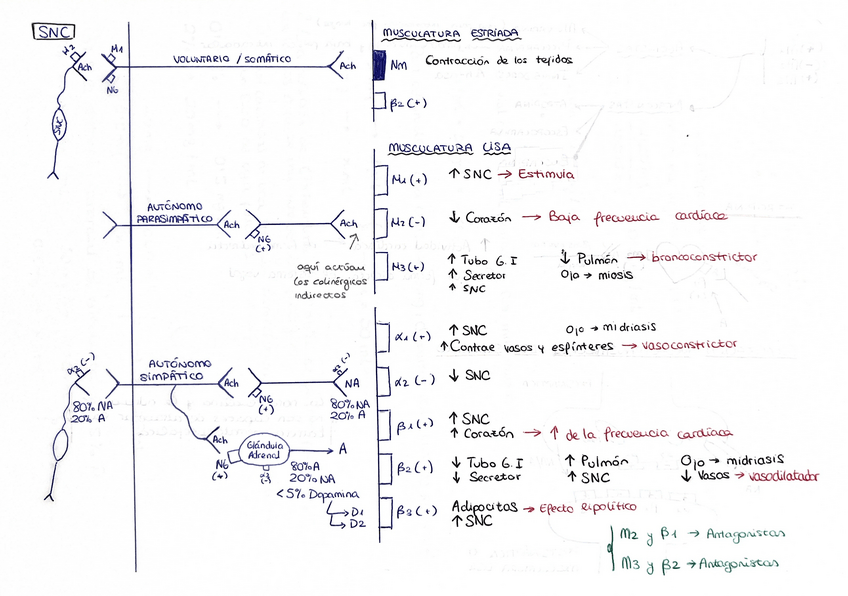 SNC
MUSCULATURA ESTRIADA
M2
Ach
M1
N6
VOLUNTARIO / SOMÁTICO
Ach
Nm
Contracción de los tejidos
β2 (+)
SNC
MUSCULATURA LISA
M1 (+)
↑ SNC → Estimula
AUTÓNOMO
PARASIMPÁTICO
Ach
N6
(+)
Ach
M2 (-)
↓ Corazón → Baja frecuencia cardíaca
aquí actúan
los colinérgicos
indirectos
M3 (+)
↑ Tubo G.I ↓ Pulmón → broncoconstrictor
↑ Secretor Ojo → miosis
↑ SNC
α1 (+)
↑ SNC Ojo → midriasis
↑ Contrae vasos y esfínteres → vasoconstrictor
α2 (-)
80% NA
20% A
AUTÓNOMO
SIMPÁTICO
Ach
N6
(+)
α2 (-)
NA
80% NA
20% A
α2 (-)
↓ SNC
β1 (+)
↑ SNC
↑ Corazón → ↑ de la frecuencia cardíaca
Ach
N6
(+)
Glándula
Adrenal
A
80% A
20% NA
<5% Dopamina
→ D1
→ D2
β2 (+)
↓ Tubo G.I ↑ Pulmón Ojo → midriasis
↓ Secretor ↑ SNC ↓ Vasos → vasodilatador
β3 (+)
Adipocitos → Efecto lipolítico
↑ SNC
M2 y β1 → Antagonistas
M3 y β2 → Antagonistas